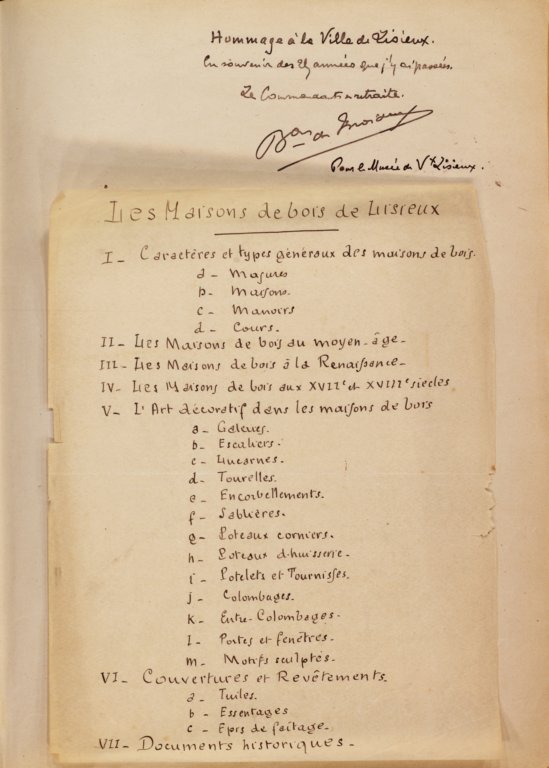 Hommage à la Ville de Lisieux.
En souvenir des 29 années que j'y ai passées.
Le Commandant en retraite.
Bon de
Pour le Musée du Vx Lisieux.
Les Maisons de bois de Lisieux
I - Caractères et types généraux des maisons de bois.
a - Masures
b - Maisons.
c - Manoirs
d - Cours.
II - Les Maisons de bois au moyen-âge.
III - Les Maisons de bois à la Renaissance -
IV - Les Maisons de bois aux XVIIe et XVIIIe siècles
V - L'Art décoratif dans les maisons de bois
a - Galeries.
b - Escaliers.
c - Lucarnes.
d - Tourelles.
e - Encorbellements.
f - Sablières.
g - Poteaux corniers.
h - Poteaux d'huisserie.
i - Potelets et Tournisses.
j - Colombages.
k - Entre-Colombages.
l - Portes et fenêtres.
m - Motifs sculptés.
VI - Couvertures et Revêtements.
a - Tuiles.
b - Essentages
c - Epis de faitage.
VII - Documents historiques -